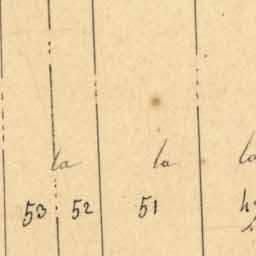 la la la
53 52 51